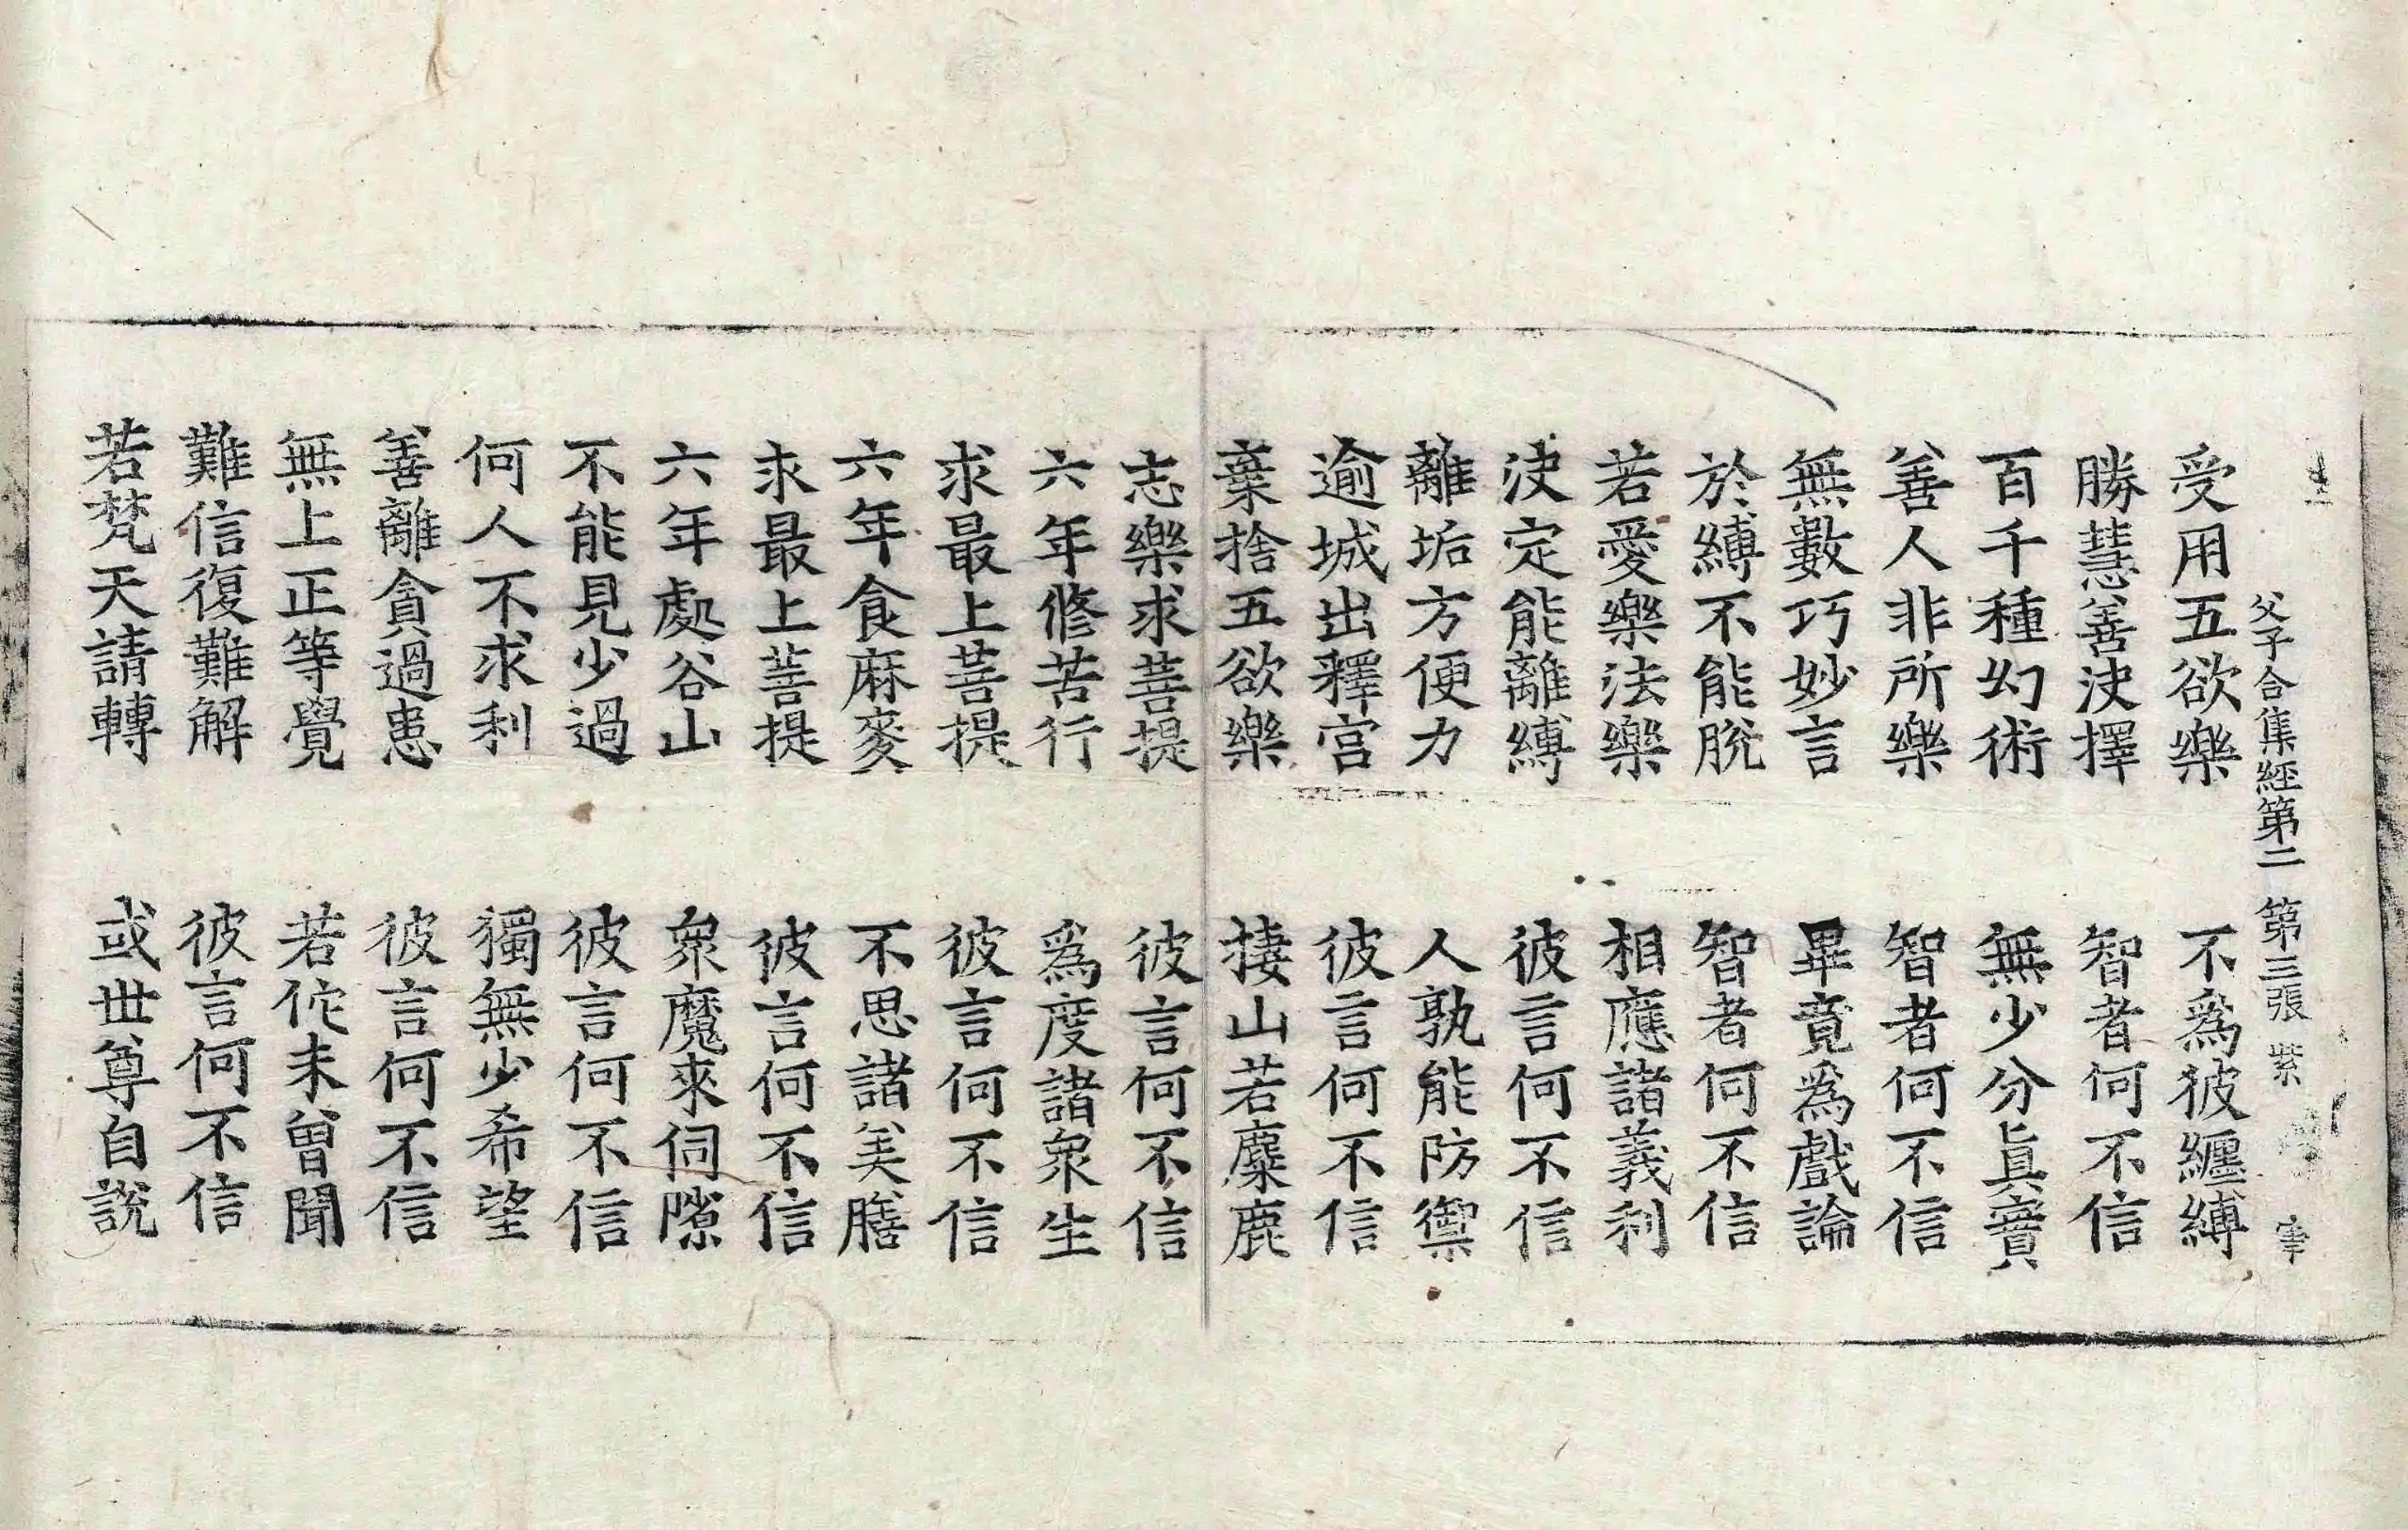 父子合集經第二　第三張　紫
受用五欲樂　不爲彼纏縛
勝慧善决擇　智者何不信
百千種幻術　無少分眞實
善人非所樂　智者何不信
無數巧妙言　畢竟爲戲論
於縛不能脫　智者何不信
若愛樂法樂　相應諸義利
决定能離縛　彼言何不信
離垢方便力　人孰能防禦
逾城出釋宮　彼言何不信
棄捨五欲樂　捿山若麋鹿
志樂求菩提　彼言何不信
六年修苦行　爲度諸衆生
求最上菩提　彼言何不信
六年食麻麥　不思諸美膳
求最上菩提　彼言何不信
六年處谷山　衆魔來伺隙
不能見少過　彼言何不信
何人不求利　獨無少希望
善離貪過患　彼言何不信
無上正等覺　若佗未曾聞
難信復難解　彼言何不信
若梵天請轉　或世尊自說